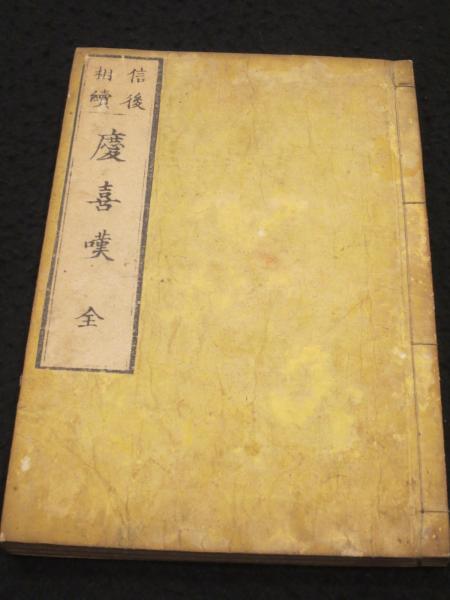 信後
相續
慶喜嘆
全